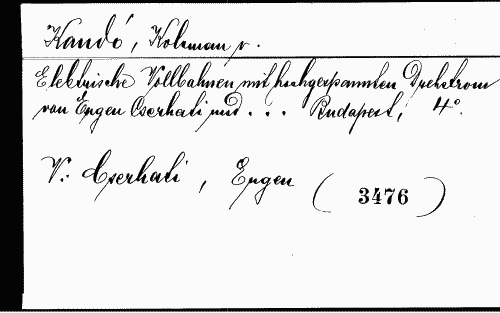 Kandó, Koloman v.
Elektrische Vollbahnen mit hochgespannten Drehstrom
von Eugen Cserhati und . . . Budapest, 4°.
V. Cserhati, Eugen (3476)